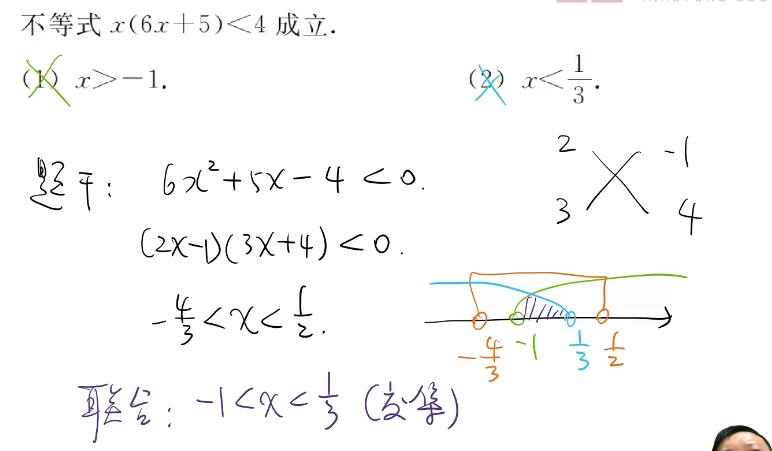 不等式 x(6x+5)<4 成立.
(1) x>-1.
(2) x<1/3.
题干: 6x²+5x-4<0.
2 -1
3 4
(2x-1)(3x+4)<0.
-4/3<x<1/2.
-4/3 -1 1/3 1/2
联合: -1<x<1/3 (交集)